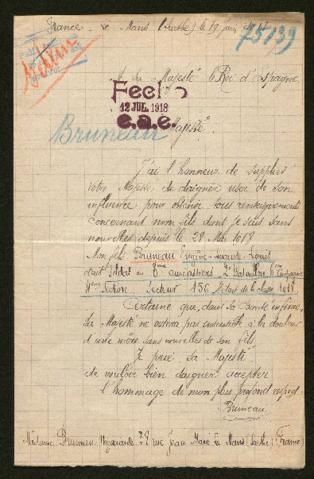 France. Le Mans (Sarthe) le 19 juin
75139
A Sa Majesté le Roi d'Espagne
Fecho
12 JUL. 1918
e.a.e.
Bruneau
Majesté
J'ai l'honneur de supplier
votre Majesté de daigner user de son
influence pour obtenir tous renseignements
concernant mon fils dont je suis sans
nouvelles depuis le 28 Mai 1918
Mon fils Bruneau Eugène Louis
était soldat au
Section Secteur 156
Certaine que, dans sa bonté infinie,
Sa Majesté ne restera pas insensible à la douleur
d'une mère sans nouvelles de son fils,
Je prie Sa Majesté
de vouloir bien daigner accepter
l'hommage de mon plus profond respect
Bruneau
Madame Bruneau 78 rue Jean Macé Le Mans (Sarthe) France